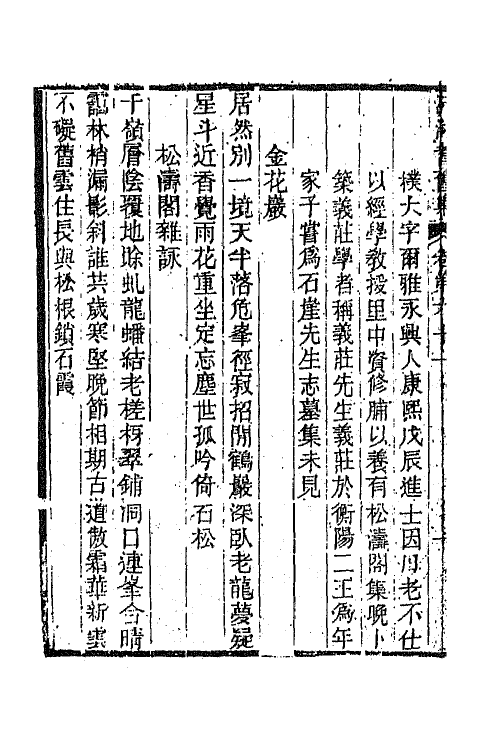 樸大字爾雅永興人康熙戊辰進士因母老不仕
以經學教授里中資修脯以養有松濤閣集晚卜
築義莊學者稱義莊先生義莊於衡陽二王為年
家子嘗為石崖先生志墓集未見
金花巖
居然別一境天半落危峯徑寂招閒鶴巖深臥老龍夢疑
星斗近香覺雨花重坐定忘塵世孤吟倚石松
松濤閣雜詠
千嶺層陰覆地賒虬龍蟠結老槎枒翠鋪洞口連峯合晴
靄林梢漏影斜誰共歲寒堅晚節相期古道傲霜華新雲
不礙舊雲住長與松根鎖石霞